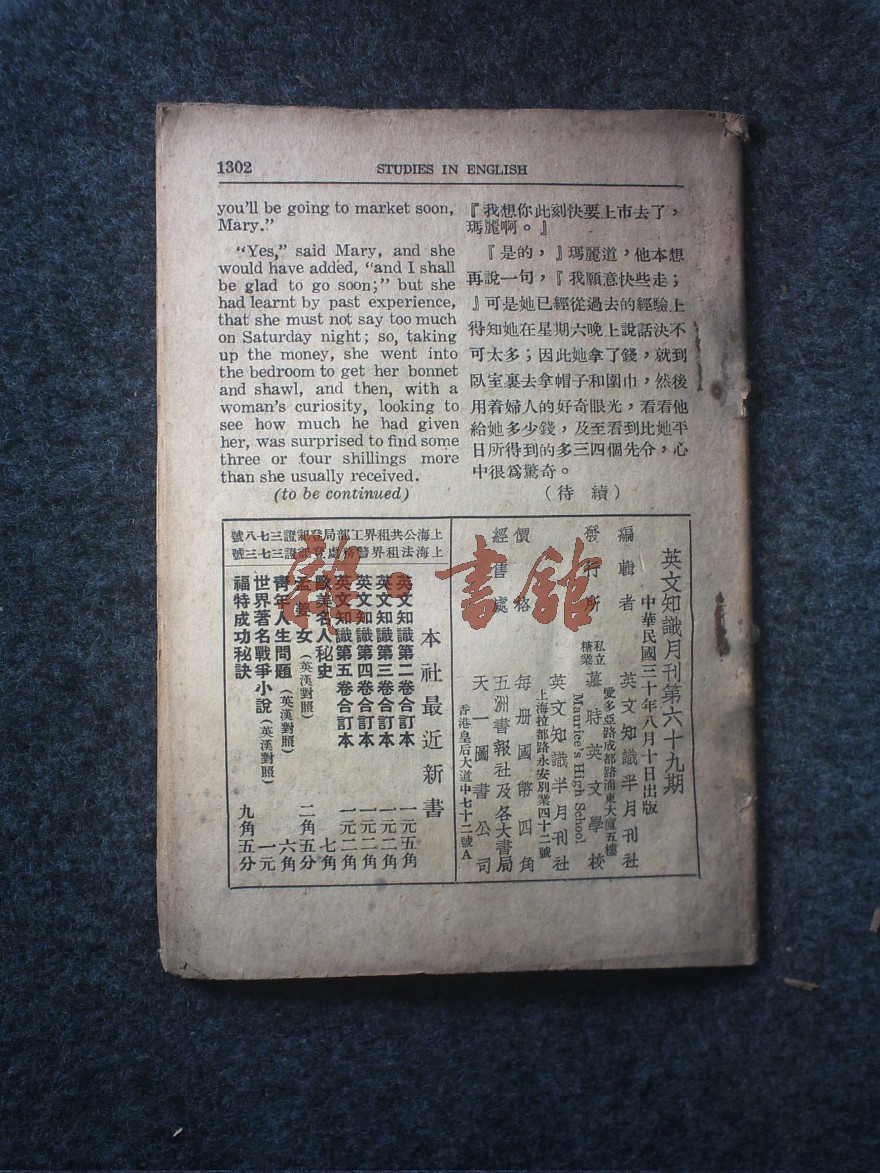 1302
STUDIES IN ENGLISH
you'll be going to market soon,
Mary.”
“Yes,” said Mary, and she
would have added, “and I shall
be glad to go soon;” but she
had learnt by past experience,
that she must not say too much
on Saturday night; so, taking
up the money, she went into
the bedroom to get her bonnet
and shawl, and then, with a
woman's curiosity, looking to
see how much he had given
her, was surprised to find some
three or four shillings more
than she usually received.
(to be continued)
『我想你此刻快要上市去了，
瑪麗啊。』
『是的，』瑪麗道，他本想
再說一句，『我願意快些走；
』可是她已經從過去的經驗上
得知她在星期六晚上說話決不
可太多；因此她拿了錢，就到
臥室裏去拿帽子和圍巾，然後
用着婦人的好奇眼光，看看他
給她多少錢，及至看到比她平
日所得到的多三四個先令，心
中很爲驚奇。
（待續）
英文知識月刊第六十九期
中華民國三十年八月十日出版
編輯者 英文知識半月刊社
愛多亞路成都路浦東大廈五樓
發行所 私立糖業慕時英文學校
Maurice's High School
英文知識半月刊社
上海拉部路永安別業四十二號
價格 每册國幣四角
經售處 五洲書報社及各大書局
天一圖書公司
香港皇后大道中七十二號A
上海公共租界工部局登記證三七八號
上海法租界警務處登記證三七三號
本社最近新書
英文知識第二卷合訂本 一元五角
英文知識第三卷合訂本 一元二角
英文知識第四卷合訂本 一元二角
英文知識第五卷合訂本 一元二角
歐美名人秘史 七角
孟姜女（英漢對照） 二角五分
靑年人生問題（英漢對照） 六角
世界著名戰爭小說（英漢對照） 一元
福特成功秘訣 九角五分
雜·書館